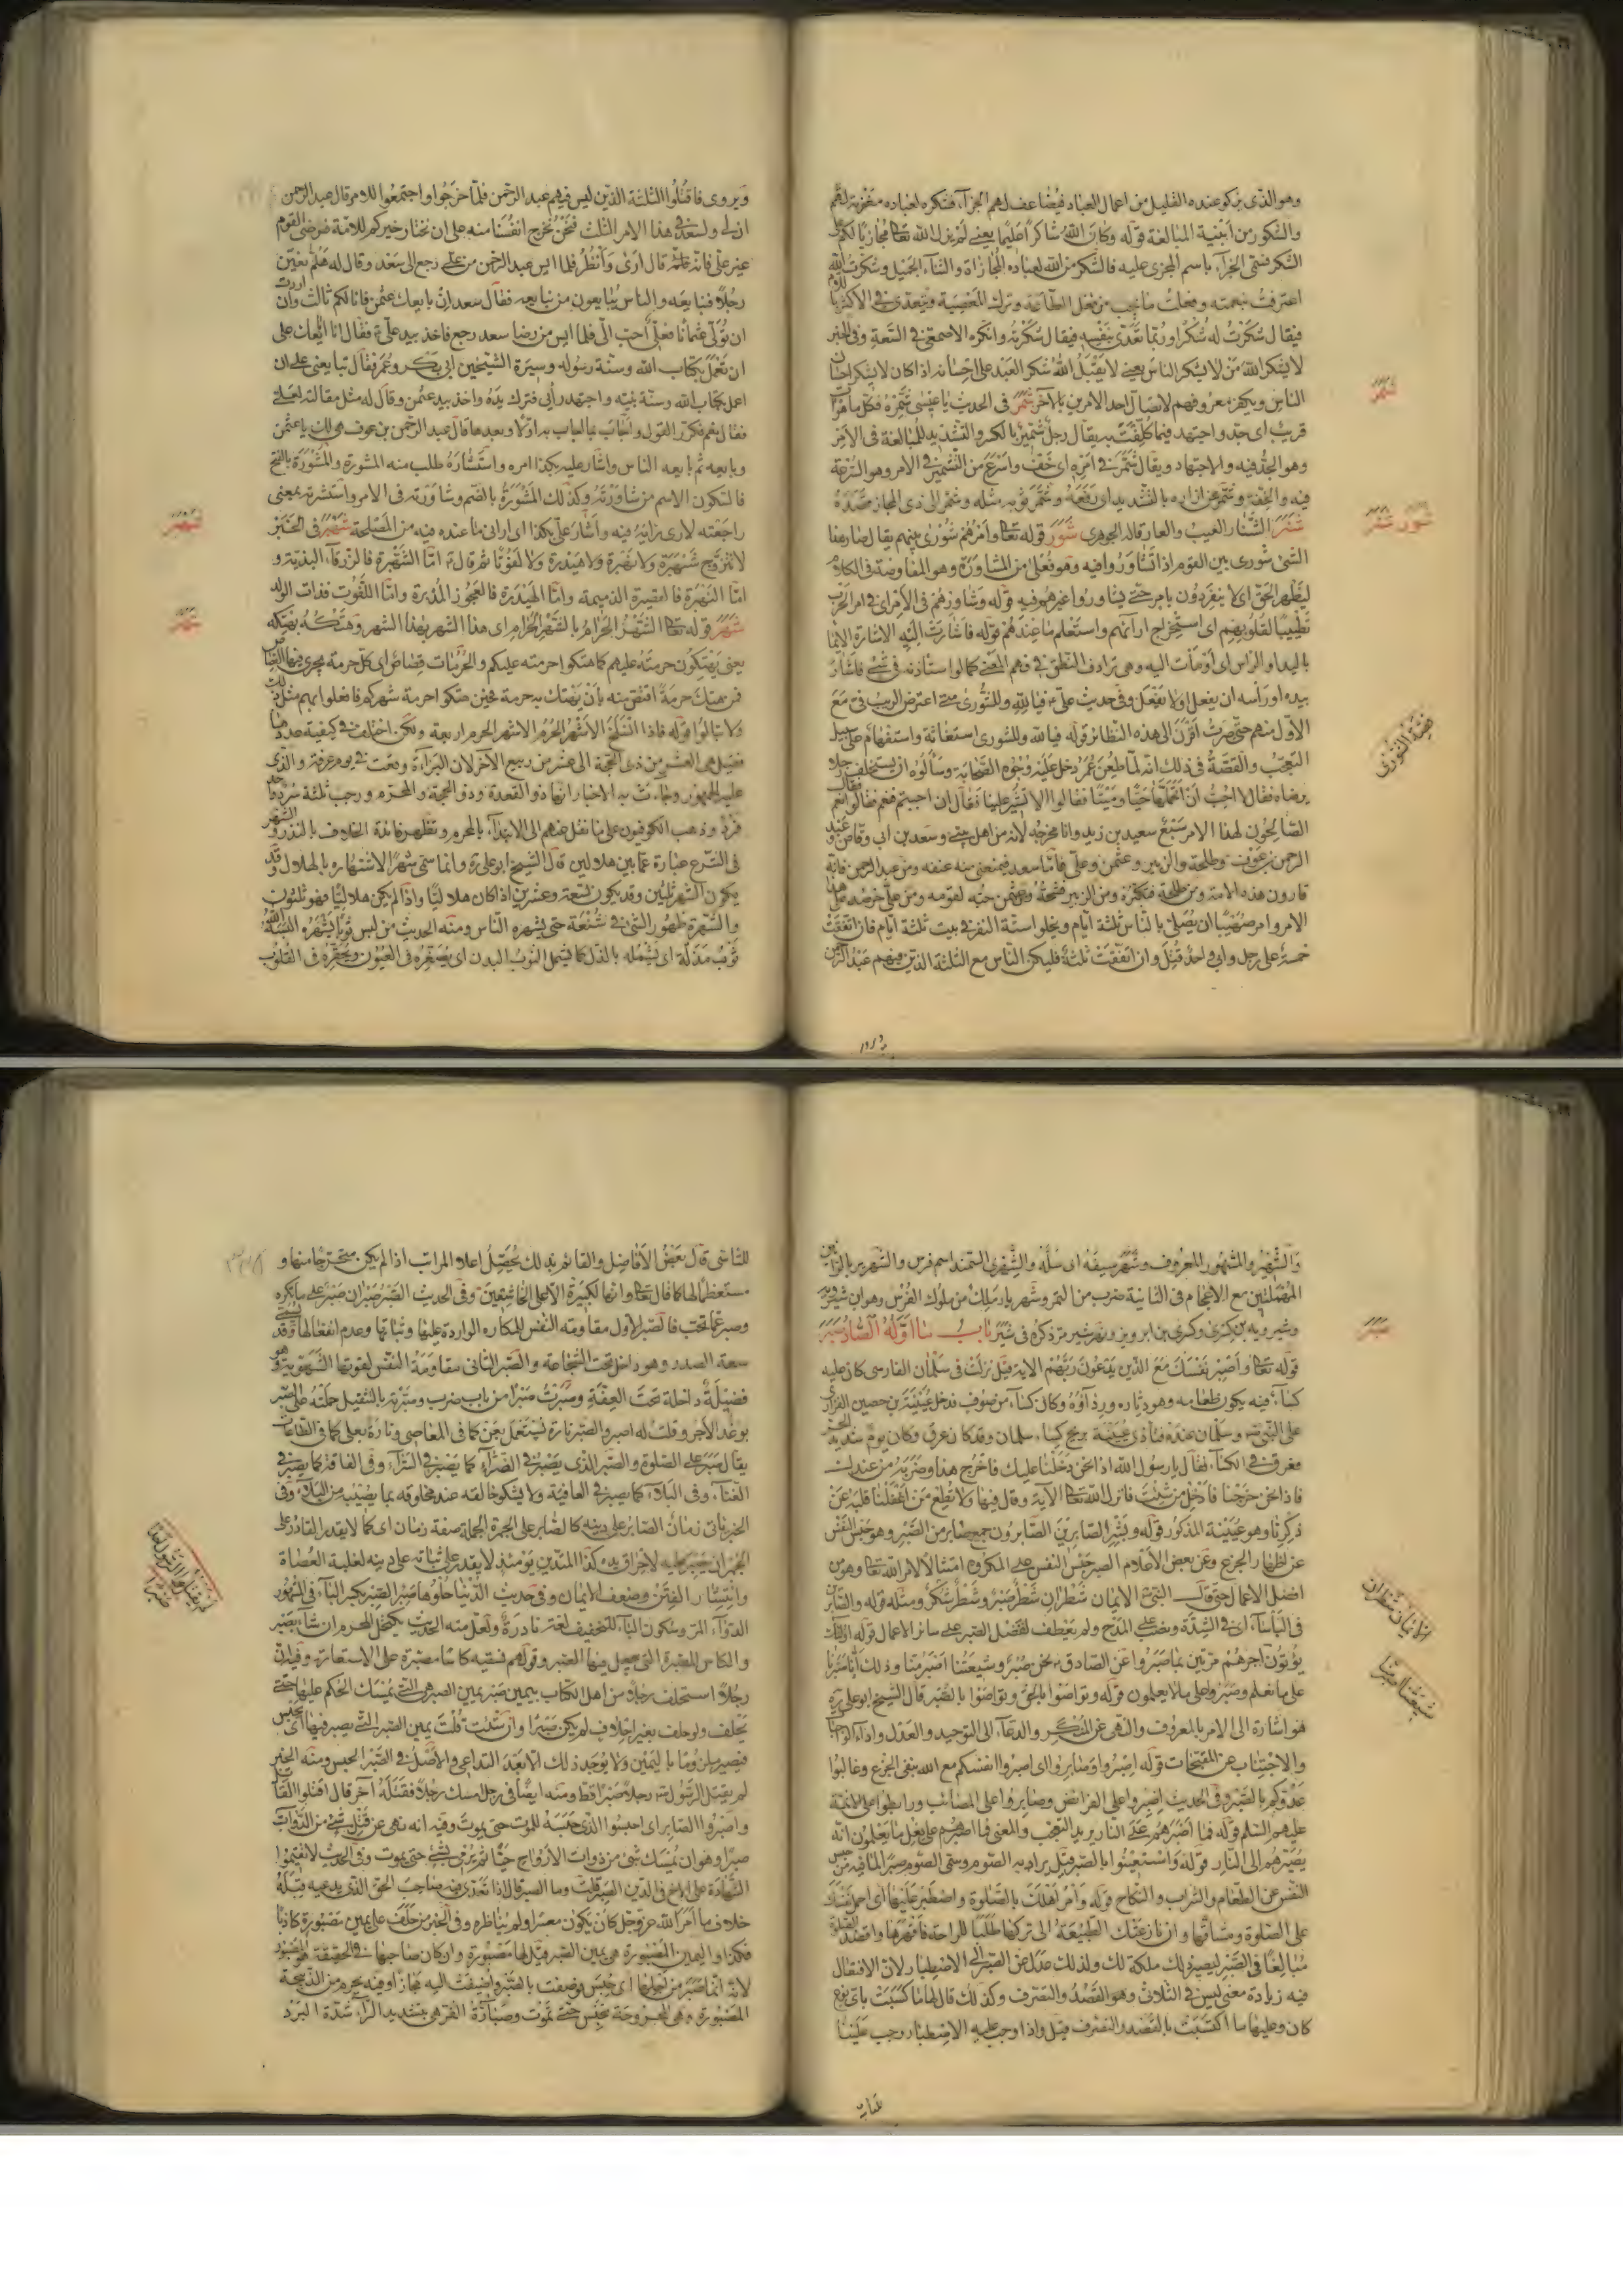 وهو الذى يزكو عنده القليل من اعمال العباد فيضاعف لهم الجزاء فشكره لعباده مغفرته لهم
والشكور من ابنية المبالغة قوله وكان الله شاكرا عليما يعنى لم يزل الله تعالى مجازيا لكم على
الشكر فسمى الجزاء باسم المجزى عليه فالشكر من الله لعباده المجازاة والثناء الجميل وشكرت الله
اعترفت بنعمته وفعلت ما يجب من فعل الطاعة وترك المعصية ويتعدى فى الاكثر باللام
فيقال شكرت له شكرا وربما تعدى بنفسه فيقال شكرته وانكره الاصمعى فى السعة وفى الخبر
لا يشكر الله من لا يشكر الناس يعنى لا يقبل الله شكر العبد على احسانه اذا كان لا يشكر احسان
الناس ويكفر معروفهم لاتصال احد الامرين بالآخر شمر فى الحديث يا عيسى شمر فكل ما هو آت
قريب اى جد واجتهد فيما كلفت به يقال رجل شمير بالكسر والتشديد للمبالغة فى الامر
وهو الجد فيه والاجتهاد ويقال شمر فى امره اى خف واسرع من التشمير فى الامر وهو السرعة
فيه والخفة وشمر عن ازاره بالتشديد اى رفعه وشمر ثوبه مثله وشمر الى ذى المجاز قصده
شنر الشنار العيب والعار قاله الجوهرى شور قوله تعالى وامرهم شورى بينهم يقال صار هذا
الشئ شورى بين القوم اذا تشاوروا فيه وهو فعلى من المشاورة وهو المفاوضة فى الكلام
ليظهر الحق اى لا ينفردون بامر حتى يشاوروا غيرهم فيه قوله وشاورهم فى الامر اى فى امر الحرب
تطييبا لقلوبهم اى استخرج آرائهم واستعلم ما عندهم قوله فاشارت اليه الاشارة الايماء
باليد او الراس اى اومأت اليه وهى ترادف النطق فى فهم المعنى كما لو استاذنه فى شئ فاشار
بيده او رأسه ان يفعل او لا يفعل وفى حديث على ع فيا لله وللشورى متى اعترض الريب فى مع
الاول منهم حتى صرت اقرن الى هذه النظائر قوله فيا لله وللشورى استغاثة واستفهام على سبيل
التعجب والقصة فى ذلك انه لما طعن عمر دخل عليه وجوه الصحابة وسألوه ان يستخلف رجلا
يرضاه فقال لا احب ان اتحملها حيا وميتا فقالوا الا تشير علينا فقال ان احببتم فنعم فقالوا نعم فقال
الصالحون لهذا الامر سبعة سعيد بن زيد وانا مخرجه لانه من اهل بيتى وسعد بن ابى وقاص وعبد
الرحمن بن عوف وطلحة والزبير وعثمن وعلى فاما سعد فيمنعنى منه عنفه ومن عبد الرحمن فانه
قارون هذه الامة ومن طلحة فتكبره ومن الزبير فشحه ومن عثمن حبه لقومه ومن على حرصه على هذا
الامر وامر صهيبا ان يصلى بالناس ثلثة ايام ويخلوا ستة النفر فى بيت ثلثة ايام فان اتفقت
خمسة على رجل وابى واحد قتل وان اتفقت ثلثة فليكن الناس مع الثلثة الذين فيهم عبد الرحمن
شمر
شور شنر
قصة الشورى
ويروى
ويروى فاقتلوا الثلثة الذين ليس فيهم عبد الرحمن فلما خرجوا واجتمعوا للامر قال عبد الرحمن
ان لى ولسعد فى هذا الامر الثلث فنحن نخرج انفسنا منه على ان نختار خيركم للامة فرضى القوم
غير على فانه قال ارى وانظر فلما ايس عبد الرحمن من على رجع الى سعد وقال له هلم نعين
رجلا فنبايعه والناس يبايعون من تبايعه فقال سعد ان بايعك عثمن فانا لكم ثالث وان اردت
ان تولى عثمانا فعلى احب الى فلما ايس من رضا سعد رجع فاخذ بيد على ع فقال انا ابايعك على
ان تعمل بكتاب الله وسنة رسوله وسيرة الشيخين ابى بكر وعمر فقال تبايعنى على ان
اعمل بكتاب الله وسنة نبيه واجتهد رأيى فترك يده واخذ بيد عثمن وقال له مثل مقالته لعلى
فقال نعم فكرر القول واجاب بما اجاب به اولا وبعدها قال عبد الرحمن بن عوف هى لك يا عثمن
وبايعه ثم بايعه الناس واشار عليه بكذا امره واستشاره طلب منه المشورة والمشورة بالفتح
فالسكون الاسم من شاورته وكذلك المشورة بالضم وشاورته فى الامر واستشرته بمعنى
راجعته لارى رأيه فيه واشار على بكذا اى ارانى ما عنده فيه من المصلحة شهبر فى الخبر
لا تتزوج شهبرة ولا نهبرة ولا هيدرة ولا لفوتا ثم قال ع اما الشهبرة فالزرقاء البذية و
اما النهبرة فالقصيرة الذميمة واما الهيدرة فالعجوز المدبرة واما اللفوت فذات الولد
شهر قوله تعالى الشهر الحرام بالشهر الحرام اى هذا الشهر بهذا الشهر وهتكه بهتكه
يعنى يهتكون حرمته عليهم كما هتكوا حرمته عليكم والحرمات قصاص اى كل حرمة يجرى فيها القصاص
فمن هتك حرمة اقتص منه بان يهتك به حرمة فحين هتكوا حرمة شهركم فافعلوا بهم مثل ذلك
ولا تبالوا قوله فاذا انسلخ الاشهر الحرم الاشهر الحرم اربعة ولكن اختلف فى كيفية عددها
فقيل هى العشر من ذى الحجة الى عشر من ربيع الآخر لان البراءة وقعت فى يوم عرفة والذى
عليه الجمهور وجاءت به الاخبار انها ذو القعدة وذو الحجة والمحرم ورجب ثلثة سرد وواحد
فرد وذهب الكوفيون على ما نقل عنهم الى الابتداء بالمحرم وتظهر فائدة الخلاف بالنذر والشهر
فى الشرع عبارة عما بين هلالين قال الشيخ ابو على ره وانما سمى شهرا لاشتهاره بالهلال وقد
يكون الشهر ثلثين وقد يكون تسعة وعشرين اذا كان هلاليا واذا لم يكن هلاليا فهو ثلثون
والشهرة ظهور الشئ فى شنعة حتى يشهره الناس ومنه الحديث من لبس ثوبا يشهره البسه الله
ثوب مذلة اى يشمله بالذل كما يشمل الثوب البدن اى يصغره فى العيون ويحقره فى القلوب
شهبر
شهر
والشهير والمشهور المعروف وشهر سيفه اى سله والشهرى السمند اسم فرس والشهريز بالزائين
المهملتين مع الاعجام فى الثانية ضرب من التمر وشهريار ملك من ملوك الفرس وهو ابن شيرويه
وشيرويه بن كسرى وكسرى بن ابرويز ونهر شير مر ذكره فى شير باب ما اوله الصاد صبر
قوله تعالى واصبر نفسك مع الذين يدعون ربهم الاية قيل نزلت فى سلمان الفارسى كان عليه
كساء فيه يكون طعامه وهو دثاره ورداؤه وكان كساء من صوف فدخل عيينة بن حصين الفزارى
على النبى ص وسلمان عنده فتأذى عيينة بريح كساء سلمان وقد كان عرق وكان يوم شديد الحر
فعرق فى الكساء فقال يا رسول الله اذا نحن دخلنا عليك فاخرج هذا وضربه من عندك
فاذا نحن خرجنا فادخل من شئت فانزل الله تعالى الآية وقال فيها ولا تطع من اغفلنا قلبه عن
ذكرنا وهو عيينة المذكور قوله وبشر الصابرين الصابرون جمع صابر من الصبر وهو حبس النفس
عن اظهار الجزع وعن بعض الاعلام الصبر حبس النفس على المكروه امتثالا لامر الله تعالى وهو من
افضل الاعمال حتى قال النبى ص الايمان شطران شطر صبر وشطر شكر ومثله قوله والصابرين
فى البأساء اى فى الشدة ونصب على المدح ولم يعطف لفضل الصبر على سائر الاعمال قوله اولئك
يؤتون اجرهم مرتين بما صبروا عن الصادق ع نحن صبر وشيعتنا اصبر منا وذلك انا صبرنا
على ما نعلم وصبروا على ما لا يعلمون قوله وتواصوا بالحق وتواصوا بالصبر قال الشيخ ابو على ره
هو اشارة الى الامر بالمعروف والنهى عن المنكر والدعاء الى التوحيد والعدل واداء الواجبات
والاجتناب عن المقبحات قوله اصبروا وصابروا اى اصبروا انفسكم مع الله بنفى الجزع وغالبوا
عدوكم بالصبر وفى الحديث اصبروا على الفرائض وصابروا على المصائب ورابطوا على الائمة
عليهم السلم قوله فما اصبرهم على النار يريد التعجب والمعنى فما اصبرهم على فعل ما يعلمون انه
يصيرهم الى النار قوله واستعينوا بالصبر قيل يراد به الصوم وسمى الصوم صبرا لما فيه من حبس
النفس عن الطعام والشراب والنكاح قوله وأمر اهلك بالصلوة واصطبر عليها اى احمل نفسك
على الصلوة ومشاقها وان نازعتك الطبيعة الى تركها طلبا للراحة فاقهرها واقصد الصلوة
مبالغا فى الصبر ليصير ذلك ملكة لك ولذلك عدل عن الصبر الى الاصطبار لان الافتعال
فيه زيادة معنى ليس فى الثلاثى وهو القصد والتصرف وكذلك قال لها ما كسبت باى نوع
كان وعليها ما اكتسبت بالقصد والتصرف قيل واذا وجب عليه الاصطبار وجب علينا
صبر
الايمان شطران
شيعتنا اصبر منا
للتأسى قال بعض الافاضل والقائم بذلك يحصل اعلا المراتب اذا لم يكن متحرجا منها و
مستعظما لها كما قال تعالى وانها لكبيرة الا على الخاشعين وفى الحديث الصبر صبران صبر على ما تكره
وصبر عما تحب فالصبر الاول مقاومة النفس للمكاره الواردة عليها وثباتها وعدم انفعالها وقد يسمى
سعة الصدر وهو داخل تحت الشجاعة والصبر الثانى مقاومة النفس لقوتها الشهوية وهو
فضيلة داخلة تحت العفة وصبرت صبرا من باب ضرب وصبرته بالتثقيل حملته على الصبر
بوعد الاجر وقلت له اصبر والصبر تارة يستعمل بعن كما فى المعاصى وتارة بعلى كما فى الطاعات
يقال صبر على الصلوة والصبر الذى يصبر فى الضراء كما يصبر فى السراء وفى الفاقة كما يصبر فى
الغناء وفى البلاء كما يصبر فى العافية ولا يشكو خالقه عند مخلوقه بما يصيبه من البلاء وفى
الخبر ياتى زمان الصابر على دينه كالصابر على الجمرة الجملة صفة زمان اى كما لا يقدر القادر على
الجمر ان يصبر عليه لاحراق يده كذا المتدين يومئذ لا يقدر على ثباته على دينه لغلبة العصاة
وانتشار الفتن وضعف الايمان وفى حديث الدنيا حلوها صبر الصبر بكسر الباء فى المشهور
الدواء المر وسكون الباء للتخفيف لغة نادرة ولعل منه الحديث يكتحل المحرم ان شاء بصبر
والكاس المصبرة التى يجعل فيها الصبر وقولهم نسقيه كاسا مصبرة على الاستعارة وفيه ان
رجلا استحلف رجلا من اهل الكتاب بيمين صبر يمين الصبر هى التى يمسك الحكم عليها حتى
يحلف ولو حلف بغير احلاف لم يكن صبرا وان شئت قلت يمين الصبر التى يصبر فيها اى يحبس
فيصير ملزوما باليمين ولا يوجد ذلك الا بعد التداعى والاصل فى الصبر الحبس ومنه الخبر
لم يقتل الرسول ص رجلا صبرا قط ومنه ايضا فى رجل امسك رجلا فقتله آخر قال اقتلوا القاتل
واصبروا الصابر اى احبسوا الذى حبسه للموت حتى يموت وفيه انه نهى عن قتل شئ من الدواب
صبرا وهو ان يمسك شئ من ذوات الارواح حيا ثم يرمى بشئ حتى يموت وفى الحديث لا تقيموا
الشهادة على الاخ فى الدين الصبر قلت وما الصبر قال اذا تعدى فيه صاحب الحق الذى يدعيه قبله
خلاف ما امر الله عز وجل كان يكون معسرا ولم ينظره وفى الخبر من حلف على يمين مصبورة كاذبا
فكذا واليمين المصبورة هى يمين الصبر قيل لها مصبورة وان كان صاحبها فى الحقيقة هو المصبور
لانه انما صبر من اجلها اى حبس وصفت بالصبر واضيفت اليه مجازا وفيه يحرم من الذبيحة
المصبورة وهى المجروحة تحبس حتى تموت وصبارة القر هى بتشديد الراء شدة البرد